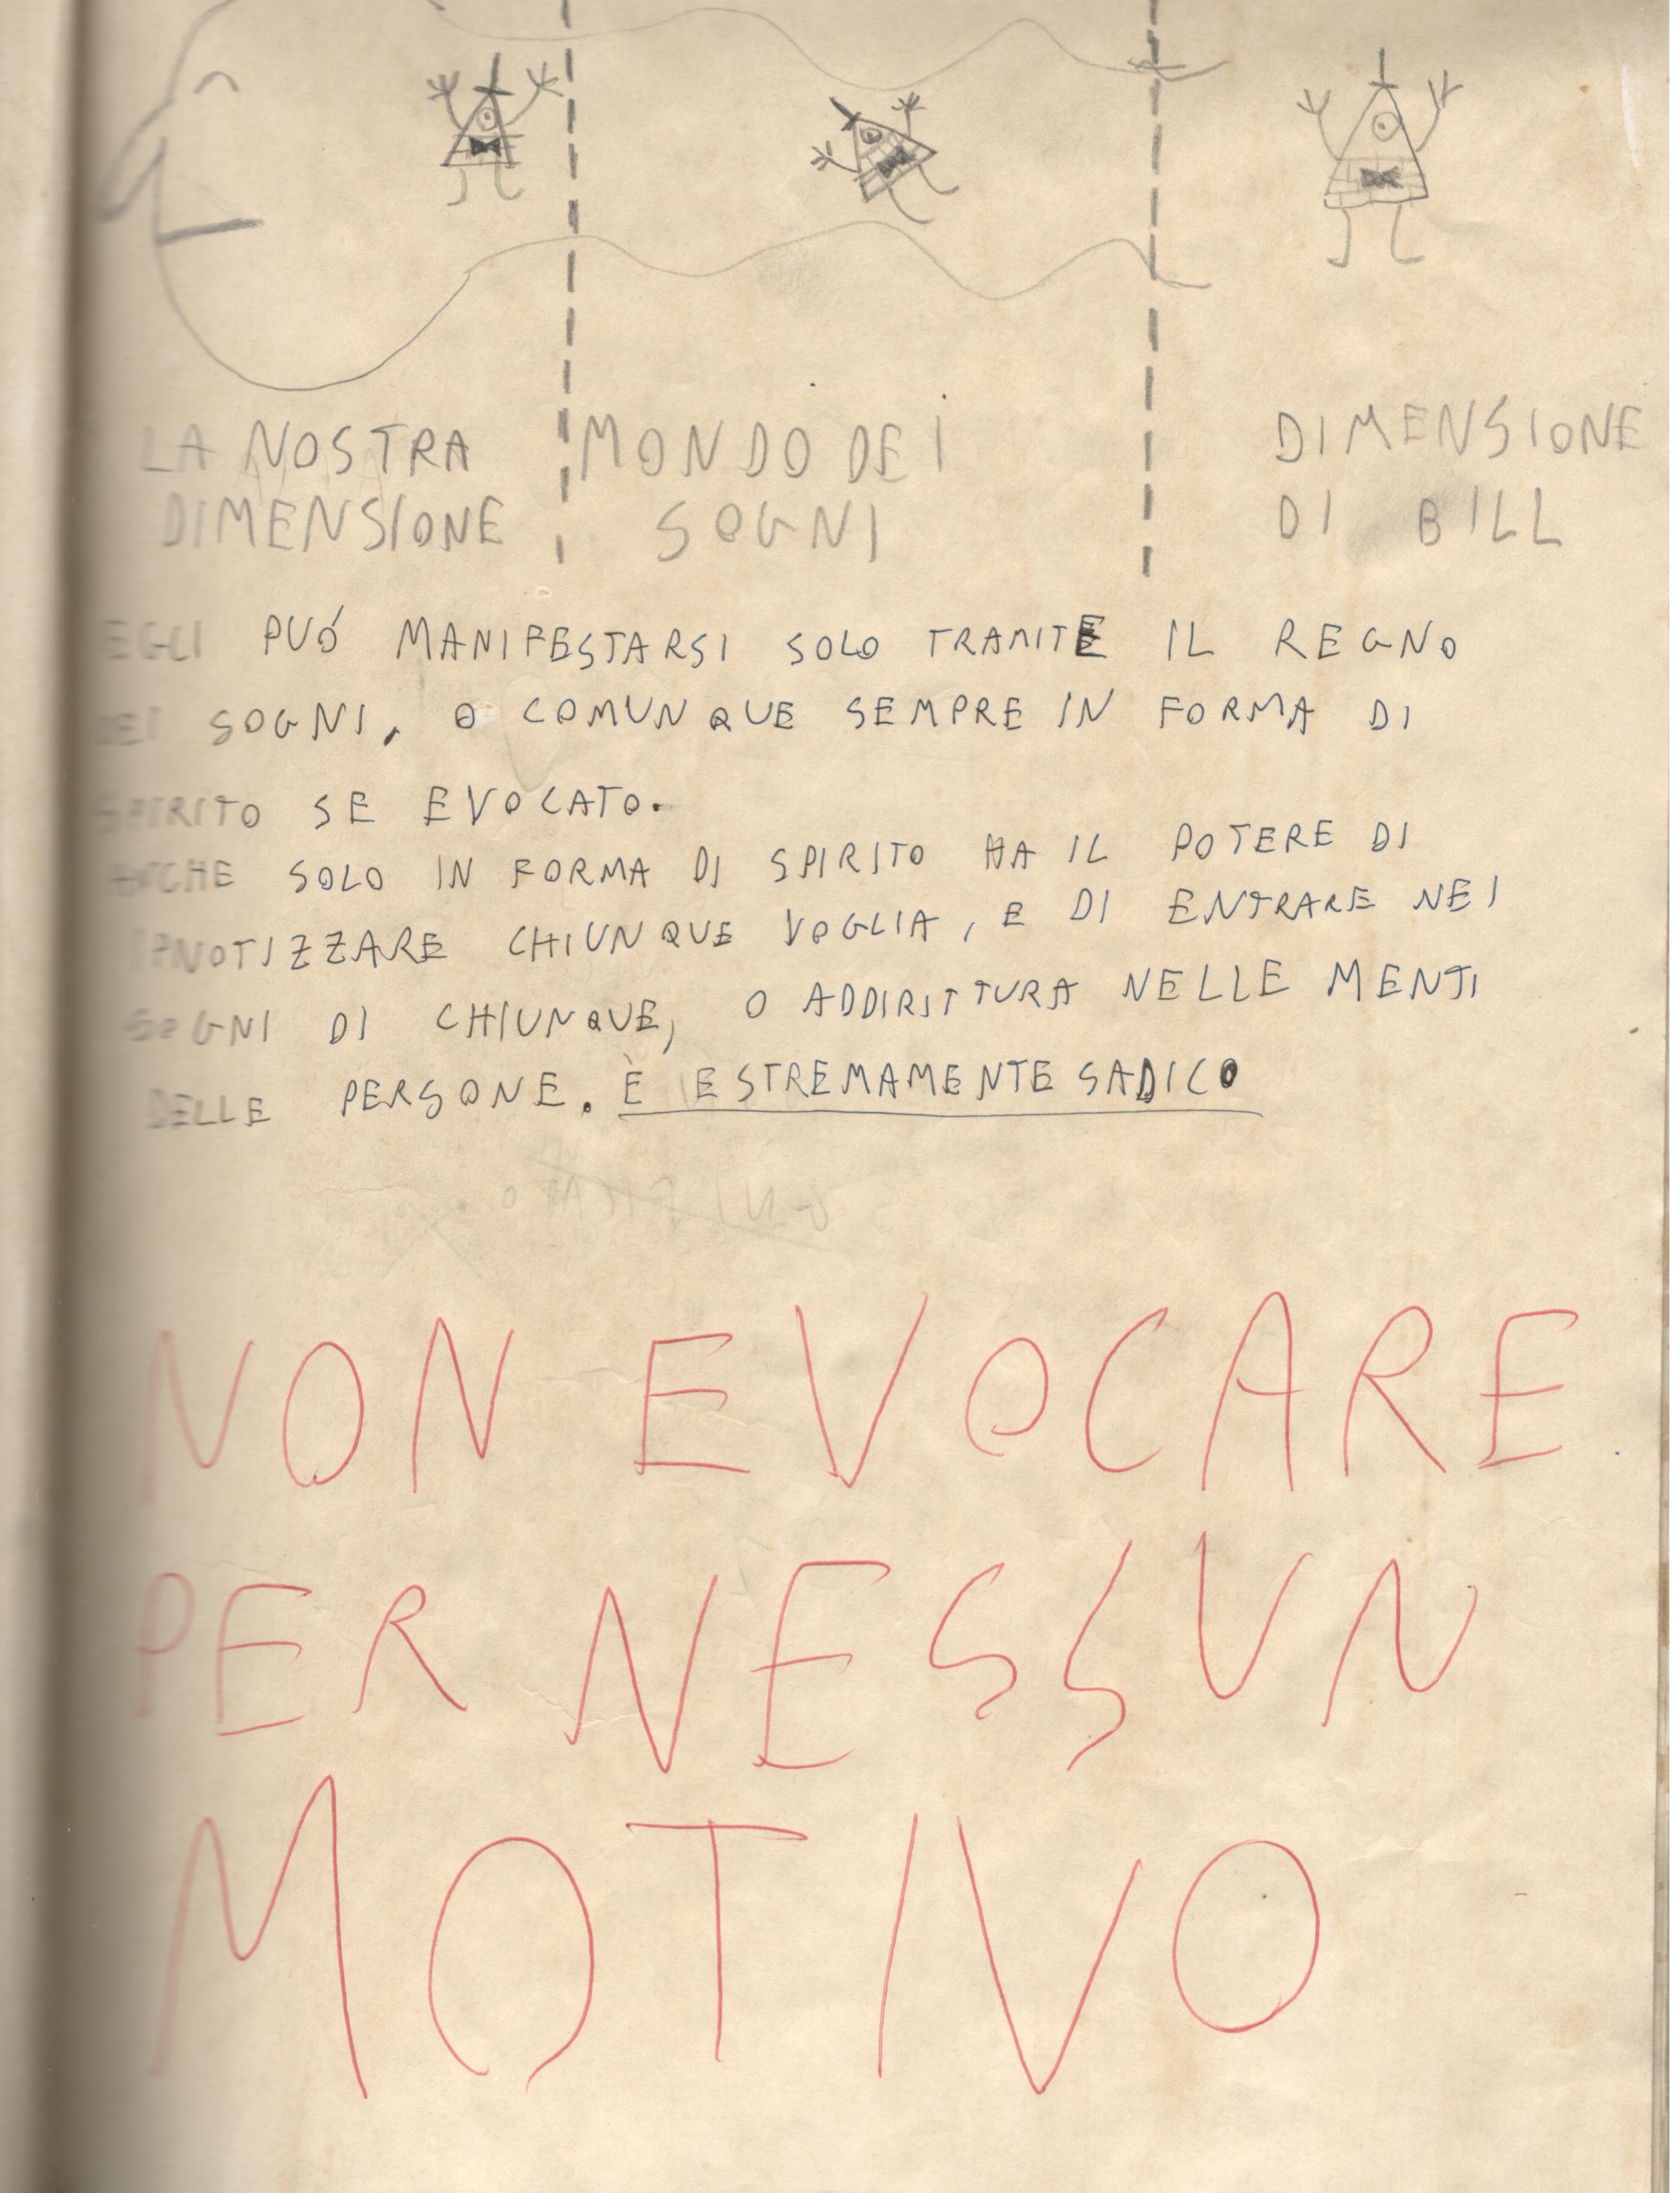 LA NOSTRA MONDO DEI DIMENSIONE
DIMENSIONE SOGNI DI BILL
EGLI PUÓ MANIFESTARSI SOLO TRAMITE IL REGNO
DEI SOGNI, O COMUNQUE SEMPRE IN FORMA DI
SPIRITO SE EVOCATO.
ANCHE SOLO IN FORMA DI SPIRITO HA IL POTERE DI
IPNOTIZZARE CHIUNQUE VOGLIA, E DI ENTRARE NEI
SOGNI DI CHIUNQUE, O ADDIRITTURA NELLE MENTI
DELLE PERSONE. È ESTREMAMENTE SADICO
NON EVOCARE
PER NESSUN
MOTIVO